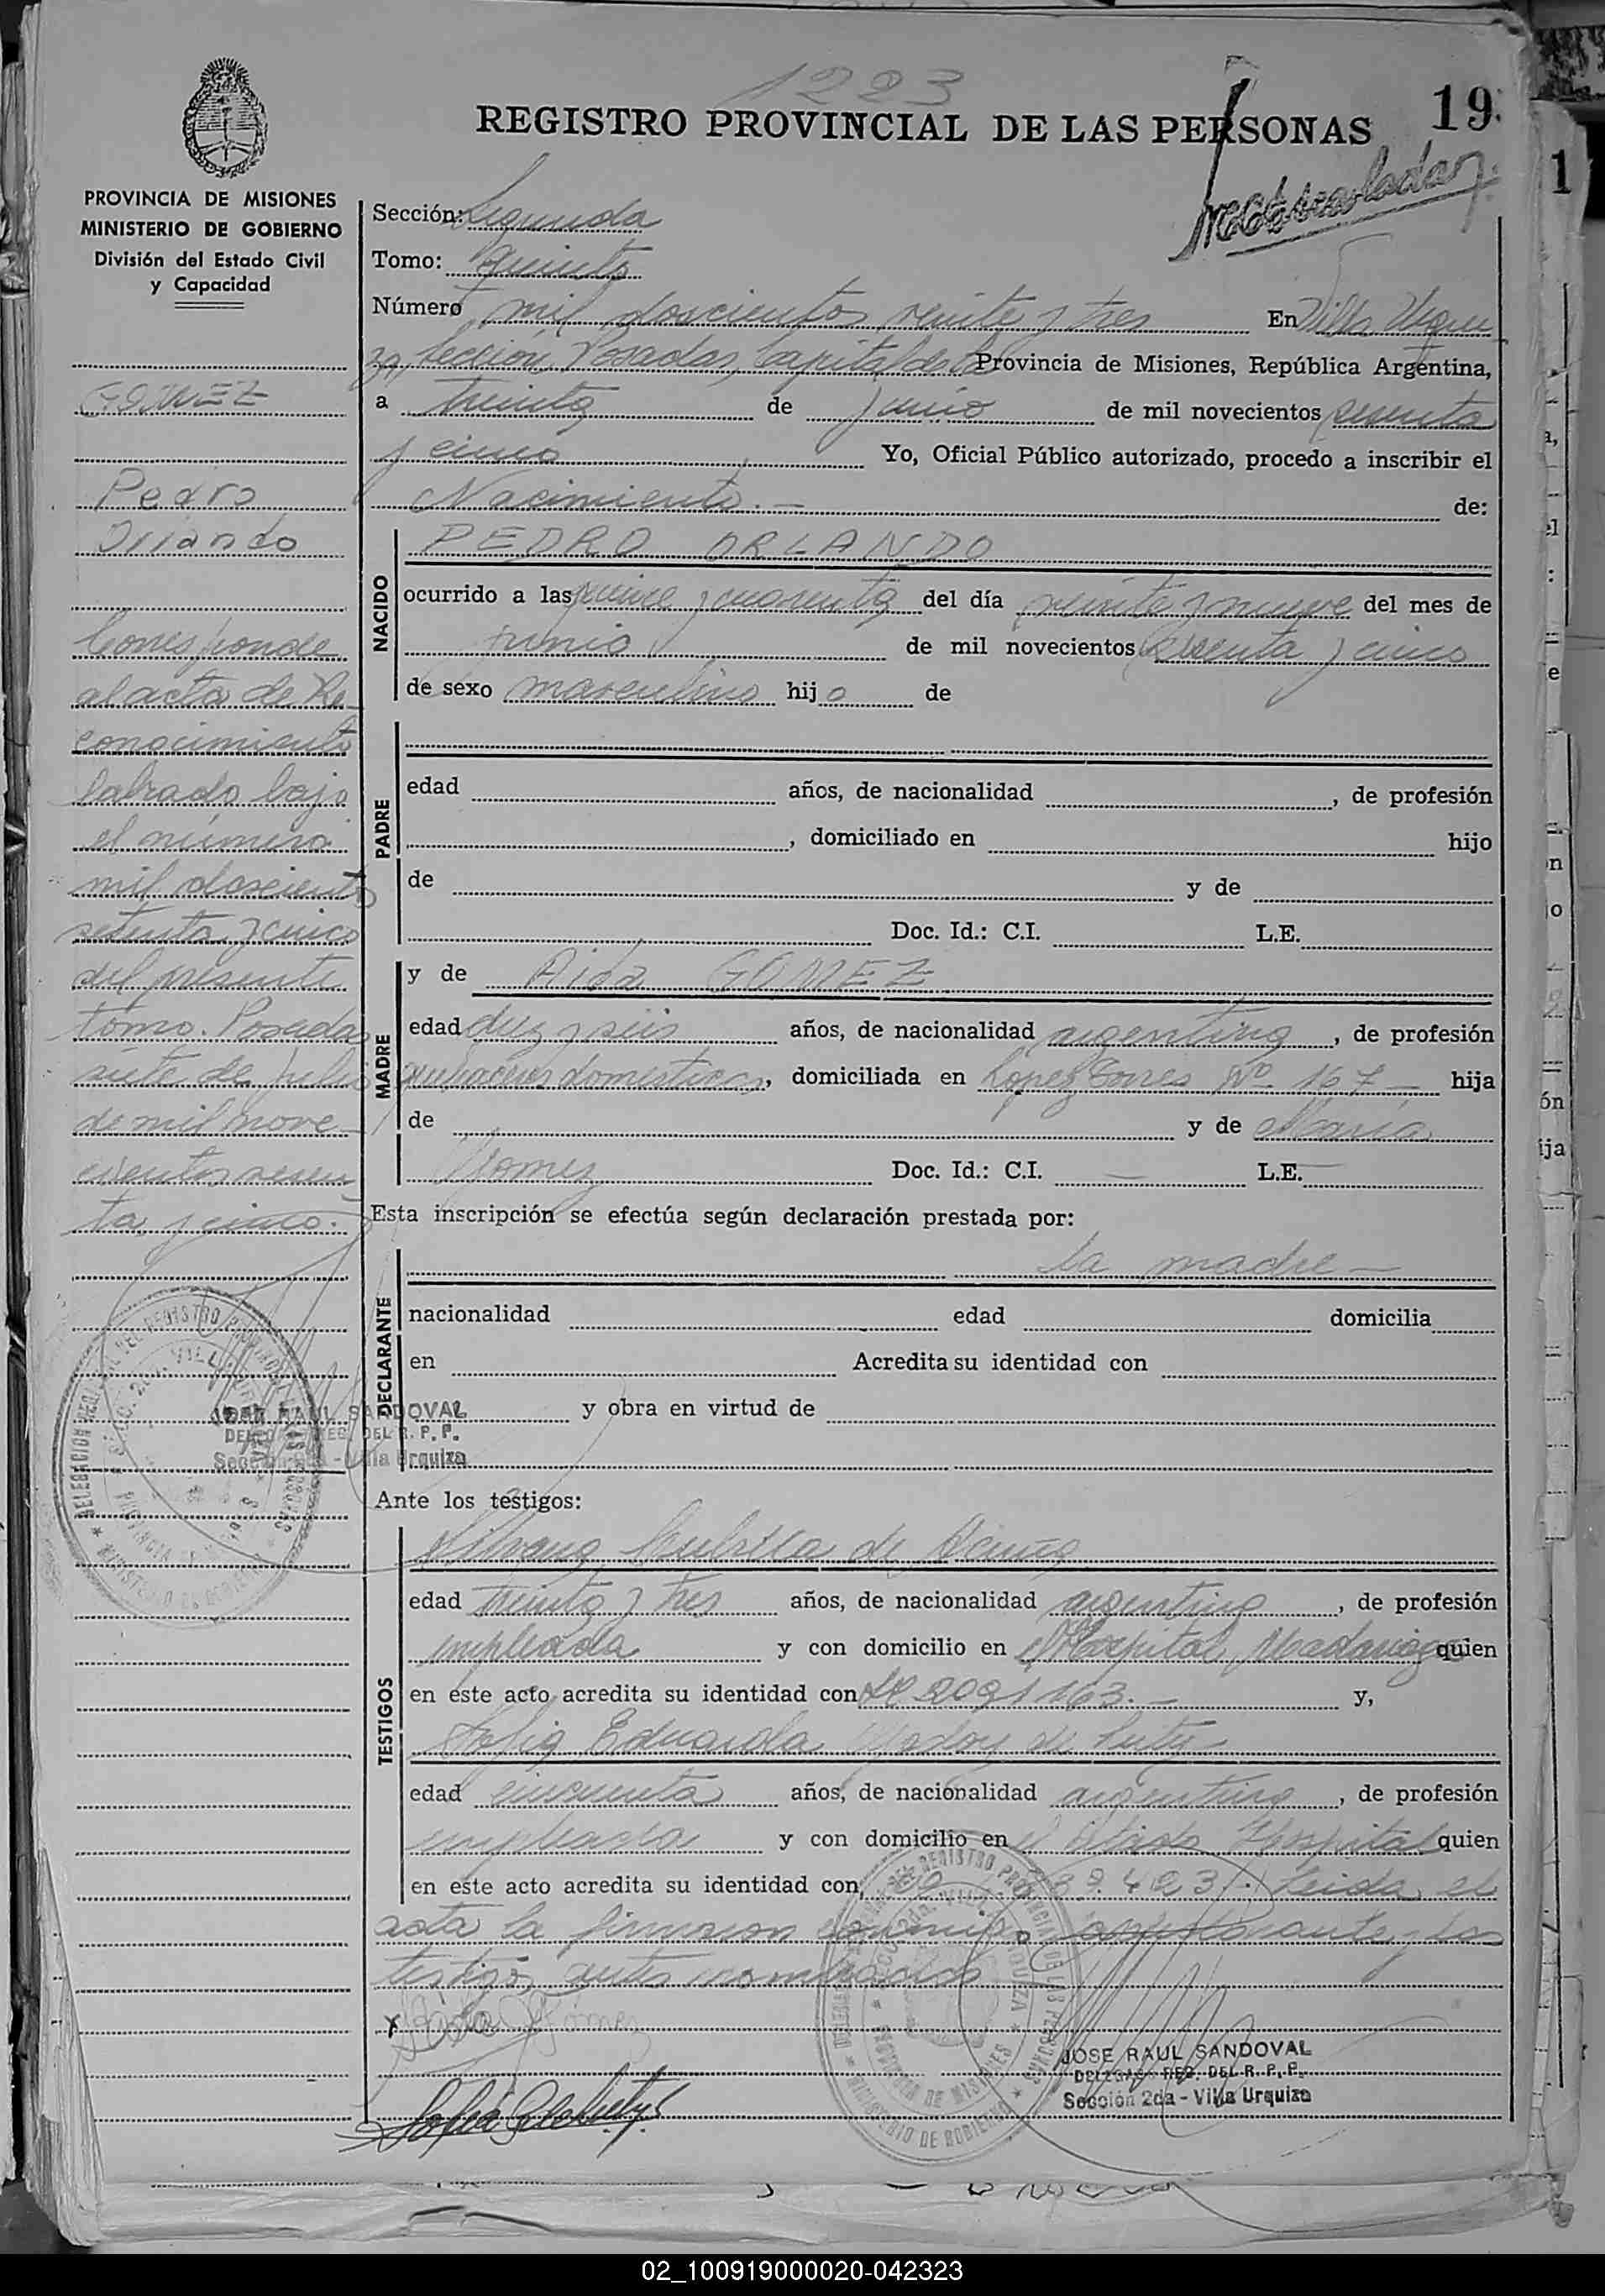 1223
REGISTRO PROVINCIAL DE LAS PERSONAS
19
1
PROVINCIA DE MISIONES
MINISTERIO DE GOBIERNO
División del Estado Civil
y Capacidad
GOMEZ
Pedro
Orlando
Corresponde
al acta de Re
conocimiento
labrado bajo
el número
mil doscientos
setenta y cinco
del presente
tomo. Posadas
siete de julio
de mil nove-
cientos sesen
ta y cinco.
Sección: Segunda
Tomo: Quinto
Número mil doscientos veinte y tres En Villa Urqui
za, Sección Posadas, Capital de la Provincia de Misiones, República Argentina,
a treinta de junio de mil novecientos sesenta
y cinco Yo, Oficial Público autorizado, procedo a inscribir el
Nacimiento.- de:
NACIDO
PEDRO ORLANDO
ocurrido a las quince y cuarenta del día veinte y nueve del mes de
junio de mil novecientos sesenta y cinco
de sexo masculino hijo de
PADRE
edad años, de nacionalidad , de profesión
, domiciliado en hijo
de y de
Doc. Id.: C.I. L.E.
MADRE
y de Aida GOMEZ
edad diez y seis años, de nacionalidad argentina, de profesión
quehaceres domesticos, domiciliada en Lopez Torres Nº 167 - hija
de y de María
Gomez Doc. Id.: C.I. — L.E.
Esta inscripción se efectúa según declaración prestada por:
DECLARANTE
la madre -
nacionalidad edad domicilia
en Acredita su identidad con
y obra en virtud de
JOSE RAUL SANDOVAL
DELEGADO REG. DEL R. P. P.
Sección 2da - Villa Urquiza
Ante los testigos:
TESTIGOS
de Acuña
edad treinta y tres años, de nacionalidad argentina, de profesión
empleada y con domicilio en el Hospital Madariaga quien
en este acto acredita su identidad con LC 2091163.- y,
Sofia Eduarda Godoy de
edad cincuenta años, de nacionalidad argentina, de profesión
empleada y con domicilio en el citado Hospital quien
en este acto acredita su identidad con Leida el
acta la firmaron conmigo la declarante y los
testigos antes nombrados
x Aida Gómez
JOSE RAUL SANDOVAL
DELEGADO REG. DEL R. P. P.
Sección 2da - Villa Urquiza
02_100919000020-042323